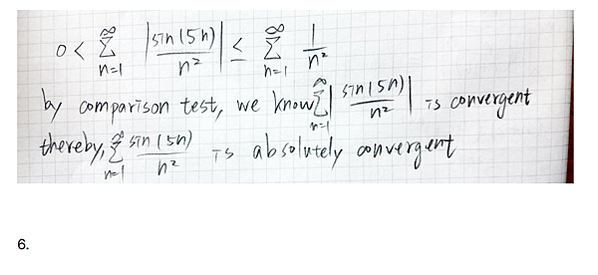 0 < ∞ Σ n=1 |sin(5n) / n²| ≤ ∞ Σ n=1 1 / n²
by comparison test, we know ∞ Σ n=1 |sin(5n) / n²| is convergent
thereby, ∞ Σ n=1 sin(5n) / n² is absolutely convergent
6.